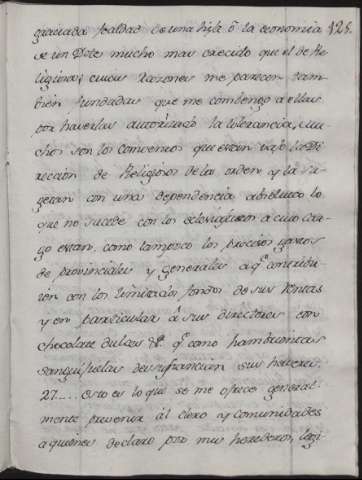 graciada fealdad de una hija ô la economia 125.
de un Dote mucho mas crecido que el de Re
ligiosa; cuias razones me parecen tam
bien fundadas que me combengo a ellas
por haverlas autorizado la tolerancia. Mu
chos son los combentos que estan bajo la Di
reccion de Religiosos de las orden y la su
getan con una dependencia absoluta lo
que no sucede con los eclesiasticos a cuio car
go estan, como tampoco los precisos gastos
de provinciales y generales a qe. contribu
ien con los limitados fondos de sus Rentas
y en particular â sus directores con
chocolate dulces &a. qe. como hambrientas
sanguijuelas desustancian sus haveres.
27.... Esto es lo que se me ofrece general
mente prevenir al clero y comunidades
a quienes declaro por mis herederos, legi